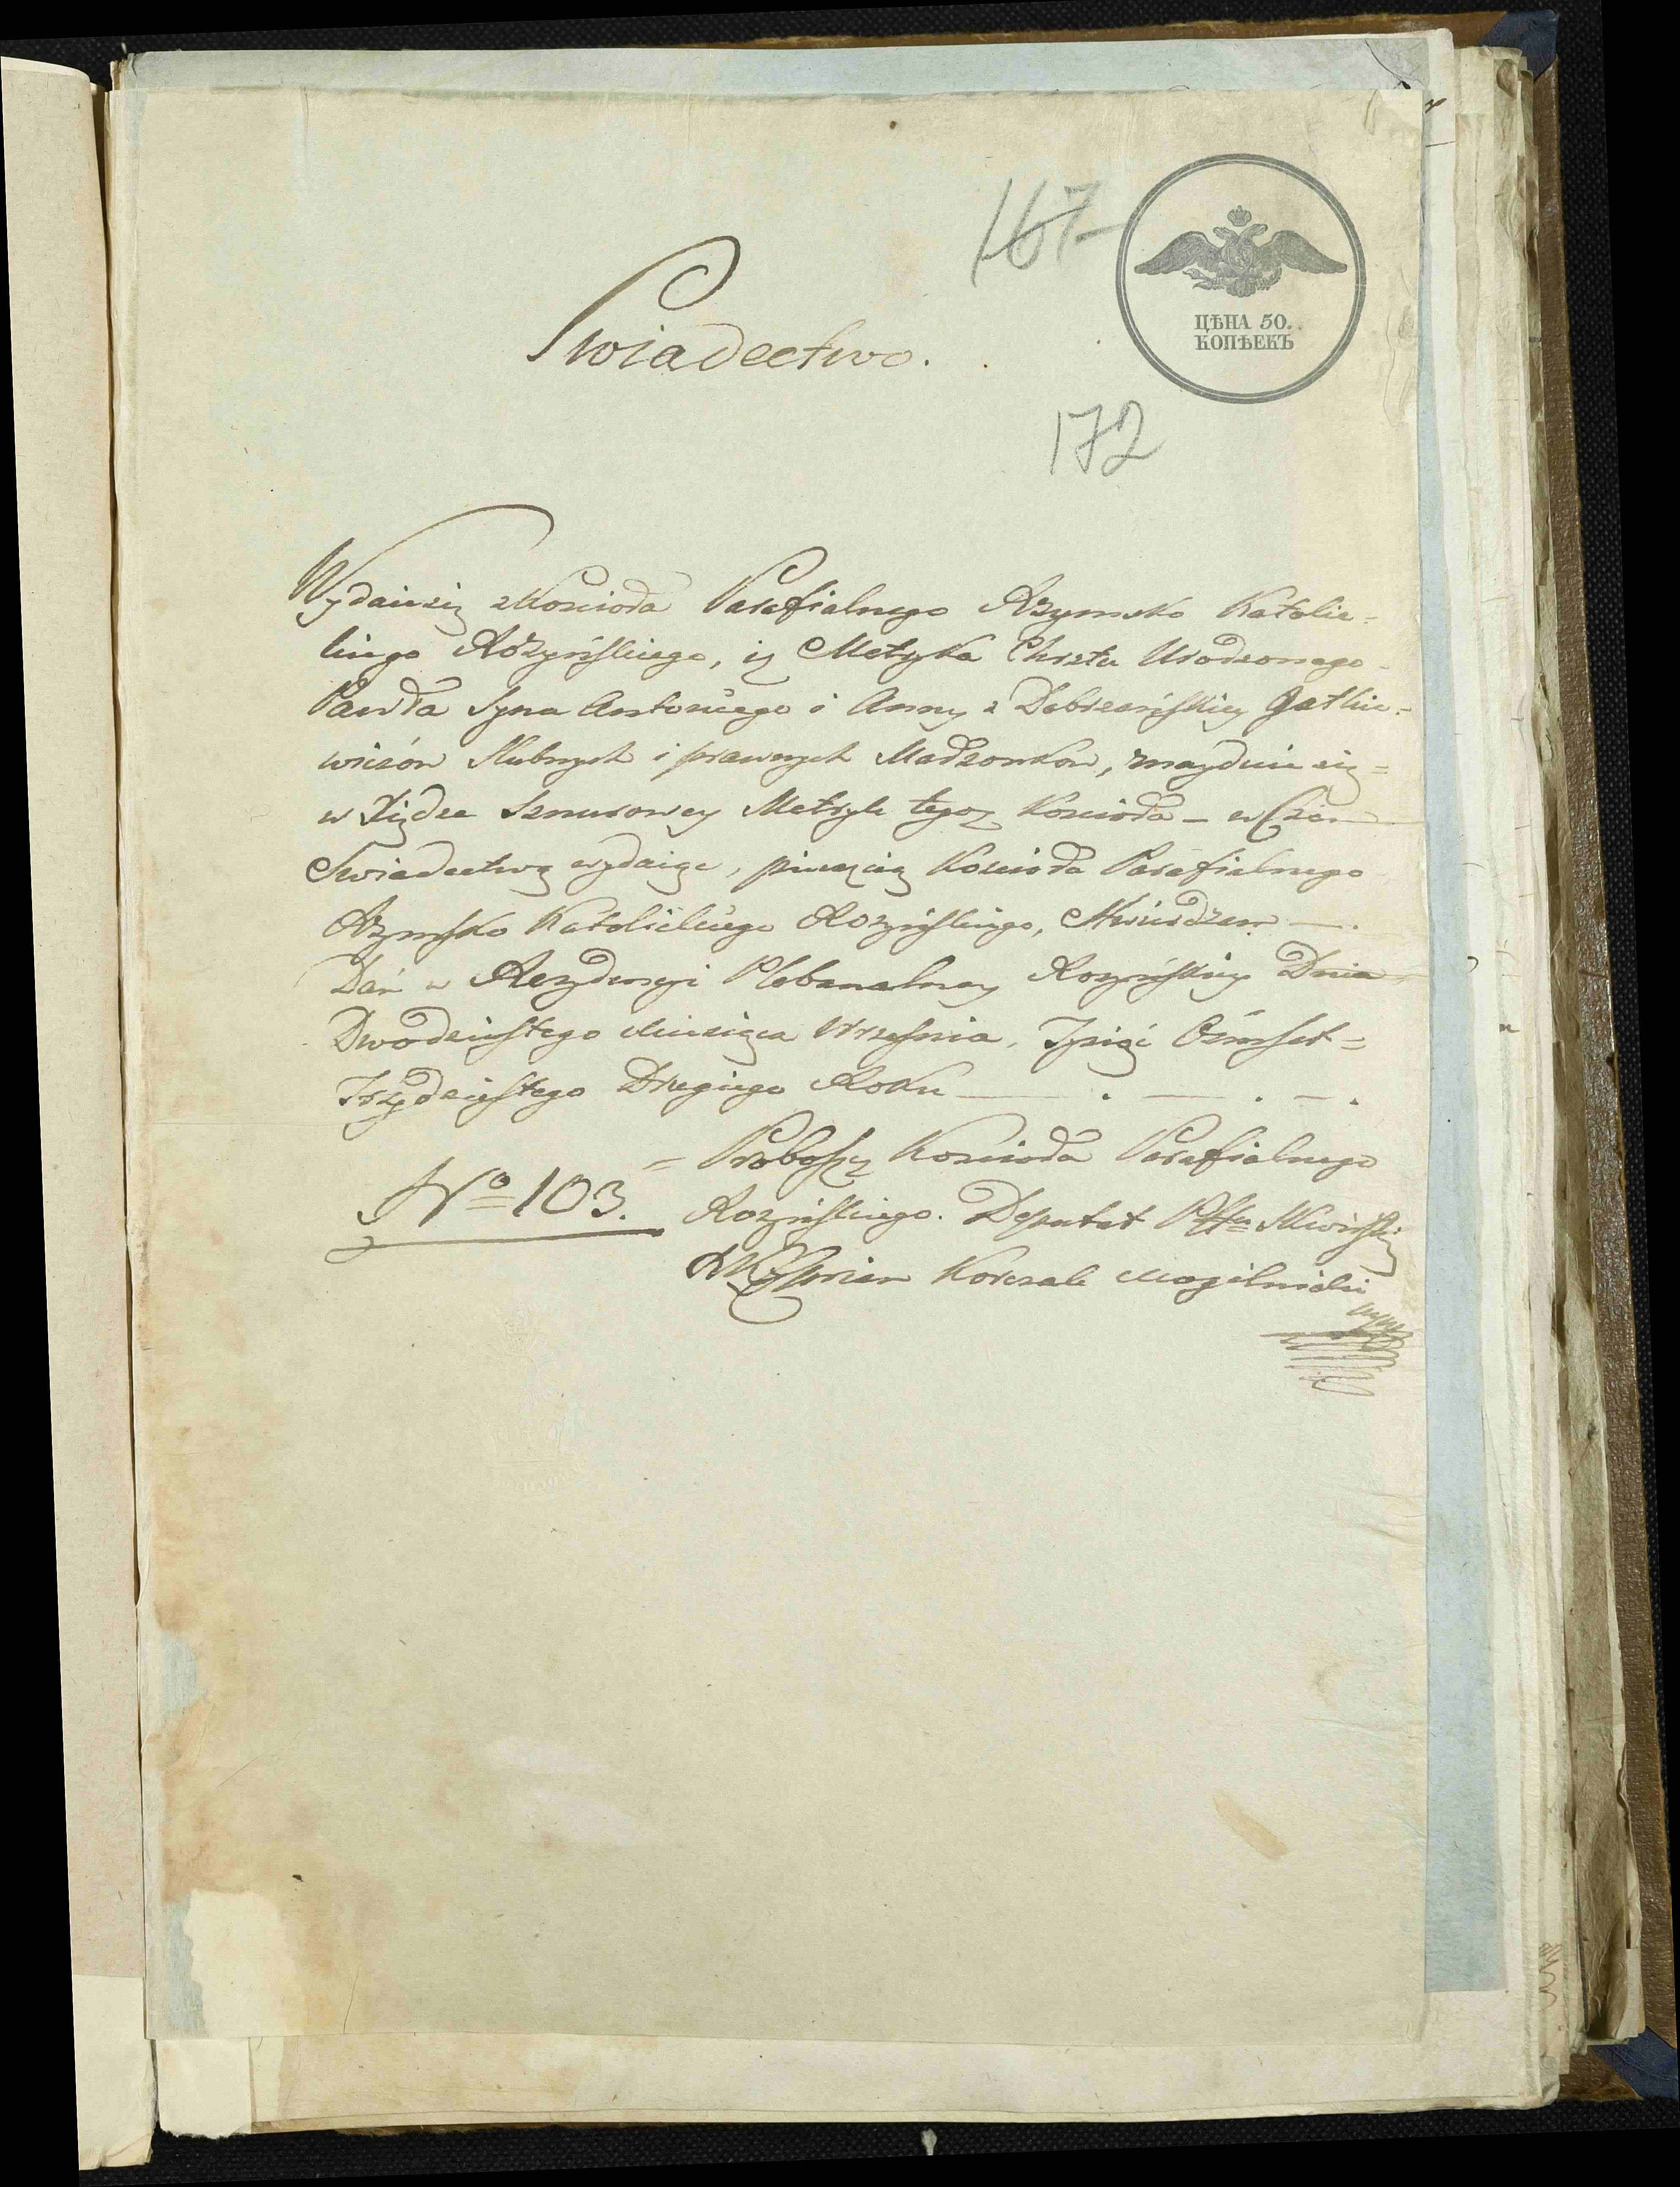 167
ЦѢНА 50.
КОПѢЕКЪ
Swiadectwo.
172
Wydaie się z Kościoła Parafialnego Rzymsko Katolic=
kiego Rożyńskiego, iż Metryka Chrztu Urodzonego
Pawła Syna Antoniego i Anny z Dobrzańskiey Gatkie=
wiczów Slubnych i prawnych Małżonkow, znayduie się=
w Xiędze Sznurowey Metryk tegoż Kościoła — w Czem
Swiadectwo wydaiąc, pieczęcią Kościoła Parafialnego
Rzymsko Katolickiego Rożyńskiego, Stwierdzam —.
Dań w Rezydencyi Plebanalney Rożyńskiey Dnia
Dwódziestego Miesiąca Września, Tysiąć Ośmset=
Trzydziestego Drugiego Roku — . — . — .
= Proboszcz Kościoła Parafialnego
No 103. Rożyńskiego. Deputat
Korczak Mogilnicki
mppr